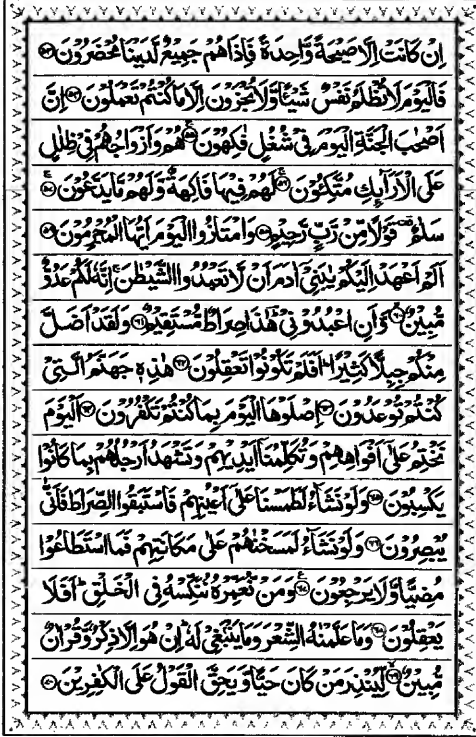 اِنْ كَانَتْ اِلَّا صَيْحَةً وَّاحِدَةً فَاِذَا هُمْ جَمِيْعٌ لَّدَيْنَا مُحْضَرُوْنَ ۝۵۳
فَالْيَوْمَ لَا تُظْلَمُ نَفْسٌ شَيْـًٔا وَّلَا تُجْزَوْنَ اِلَّا مَا كُنْتُمْ تَعْمَلُوْنَ ۝۵۴ اِنَّ
اَصْحٰبَ الْجَنَّةِ الْيَوْمَ فِيْ شُغُلٍ فٰكِهُوْنَ ۝۵۵ هُمْ وَاَزْوَاجُهُمْ فِيْ ظِلٰلٍ
عَلَى الْاَرَآىِٕكِ مُتَّكِـُٔوْنَ ۝۵۶ لَهُمْ فِيْهَا فَاكِهَةٌ وَّلَهُمْ مَّا يَدَّعُوْنَ ۝۵۷
سَلٰمٌ قَوْلًا مِّنْ رَّبٍّ رَّحِيْمٍ ۝۵۸ وَامْتَازُوا الْيَوْمَ اَيُّهَا الْمُجْرِمُوْنَ ۝۵۹
اَلَمْ اَعْهَدْ اِلَيْكُمْ يٰبَنِيْٓ اٰدَمَ اَنْ لَّا تَعْبُدُوا الشَّيْطٰنَ اِنَّهٗ لَكُمْ عَدُوٌّ
مُّبِيْنٌ ۝۶۰ وَّاَنِ اعْبُدُوْنِيْ هٰذَا صِرَاطٌ مُّسْتَقِيْمٌ ۝۶۱ وَلَقَدْ اَضَلَّ
مِنْكُمْ جِبِلًّا كَثِيْرًا اَفَلَمْ تَكُوْنُوْا تَعْقِلُوْنَ ۝۶۲ هٰذِهٖ جَهَنَّمُ الَّتِيْ
كُنْتُمْ تُوْعَدُوْنَ ۝۶۳ اِصْلَوْهَا الْيَوْمَ بِمَا كُنْتُمْ تَكْفُرُوْنَ ۝۶۴ اَلْيَوْمَ
نَخْتِمُ عَلٰٓى اَفْوَاهِهِمْ وَتُكَلِّمُنَآ اَيْدِيْهِمْ وَتَشْهَدُ اَرْجُلُهُمْ بِمَا كَانُوْا
يَكْسِبُوْنَ ۝۶۵ وَلَوْ نَشَآءُ لَطَمَسْنَا عَلٰٓى اَعْيُنِهِمْ فَاسْتَبَقُوا الصِّرَاطَ فَاَنّٰى
يُبْصِرُوْنَ ۝۶۶ وَلَوْ نَشَآءُ لَمَسَخْنٰهُمْ عَلٰى مَكَانَتِهِمْ فَمَا اسْتَطَاعُوْا
مُضِيًّا وَّلَا يَرْجِعُوْنَ ۝۶۷ وَمَنْ نُّعَمِّرْهُ نُنَكِّسْهُ فِي الْخَلْقِ اَفَلَا
يَعْقِلُوْنَ ۝۶۸ وَمَا عَلَّمْنٰهُ الشِّعْرَ وَمَا يَنْۢبَغِيْ لَهٗ اِنْ هُوَ اِلَّا ذِكْرٌ وَّقُرْاٰنٌ
مُّبِيْنٌ ۝۶۹ لِّيُنْذِرَ مَنْ كَانَ حَيًّا وَّيَحِقَّ الْقَوْلُ عَلَى الْكٰفِرِيْنَ ۝۷۰